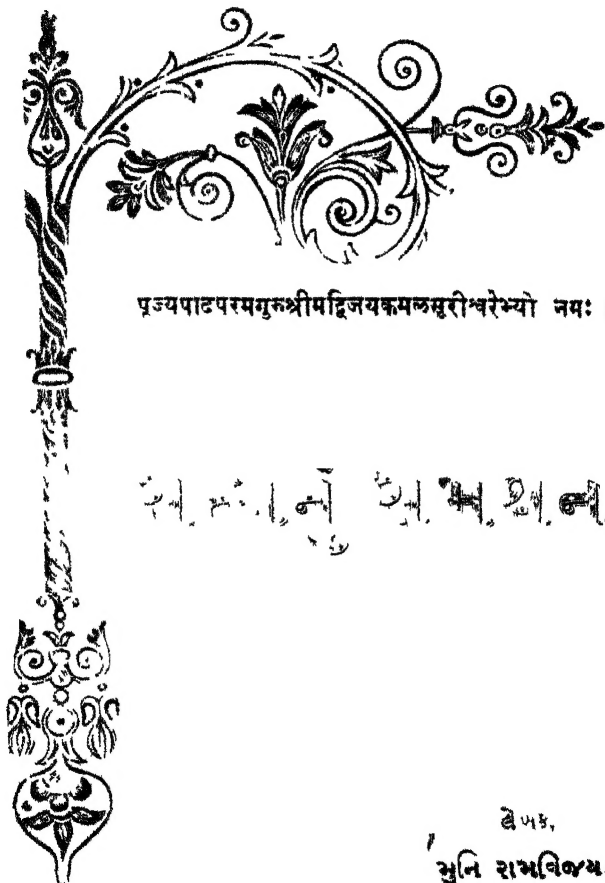 पूज्यपादपरमगुरुश्रीमद्विजयकमलसूरीश्वरेभ्यो नमः
સમર્થન
લેખક,
મુનિ રામવિજય